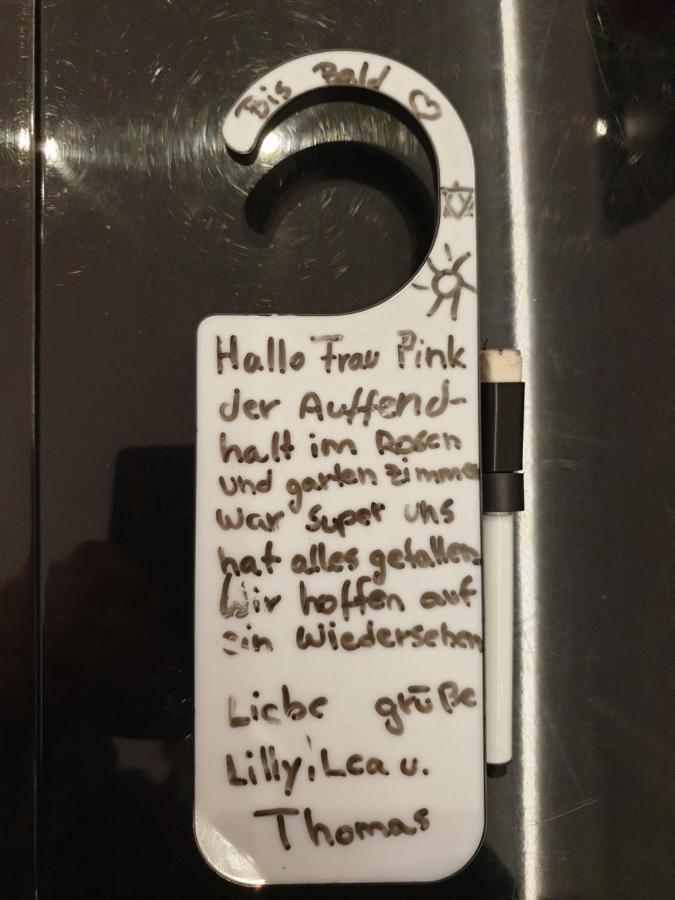 Bis Bald
Hallo Frau Pink
der Auffend-
halt im Rosen
und garten Zimmer
war super uns
hat alles gefallen
Wir hoffen auf
ein Wiedersehen
Liebe grüße
Lilly, Lea u.
Thomas